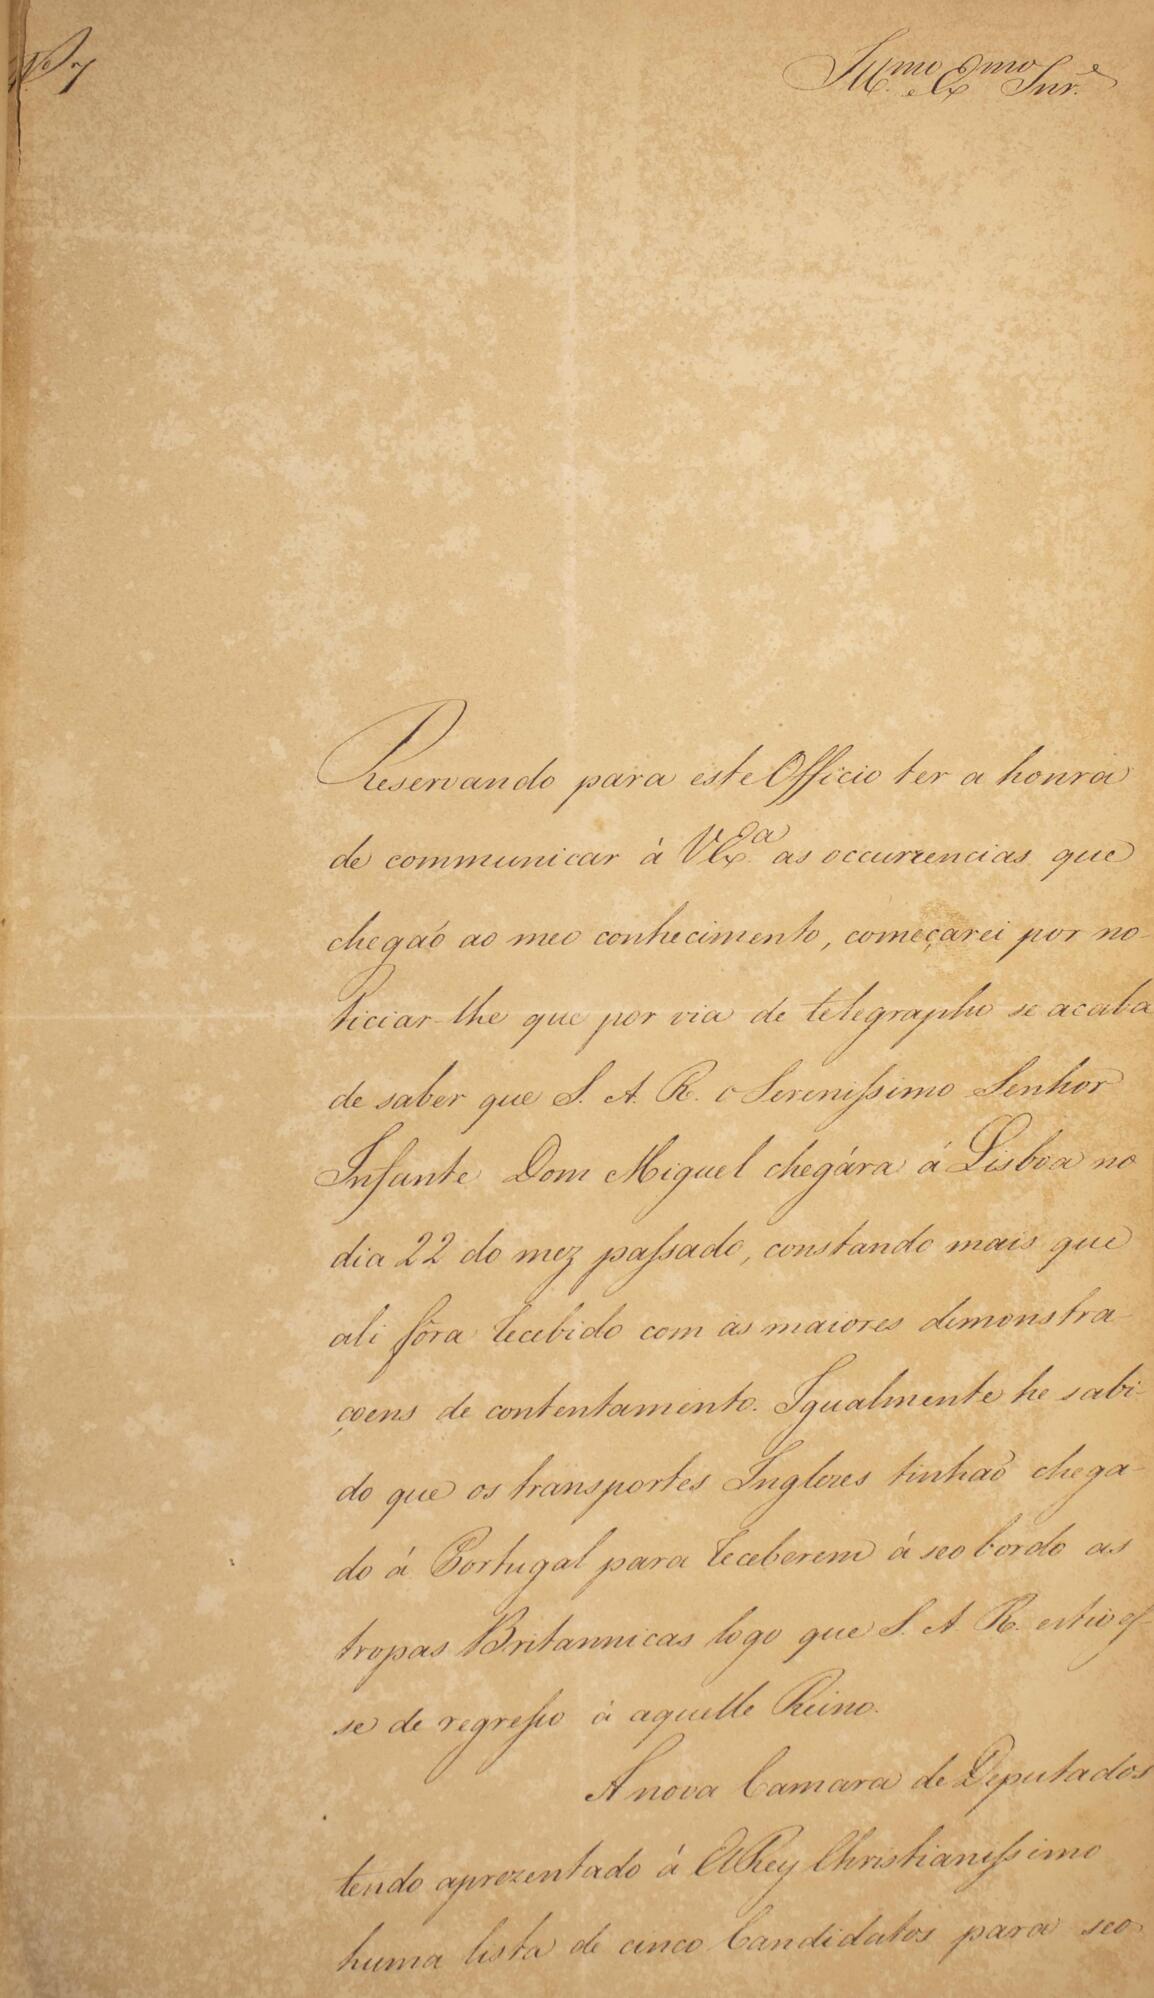 Nº 7
Illmo. e Exmo. Snr.e
Reservando para este Officio ter a honra
de communicar à VExa. as occurrencias que
chegaõ ao meo conhecimento, começarei por no-
ticiar-lhe que por via de telegrapho se acaba
de saber que S. A. R. o Serenissimo Senhor
Infante Dom Miguel chegára á Lisboa no
dia 22 do mez passado, constando mais que
ali fôra recebido com as maiores demonstra-
çoens de contentamento. Igualmente he sabi-
do que os transportes Inglezes tinhaõ chega-
do á Portugal para receberem á seo bordo as
tropas Britannicas logo que S. A. R. estives-
se de regresso à aquelle Reino.
A nova Camara de Deputados
tendo aprezentado á ElRey Christianissimo
huma lista de cinco Candidatos para seo